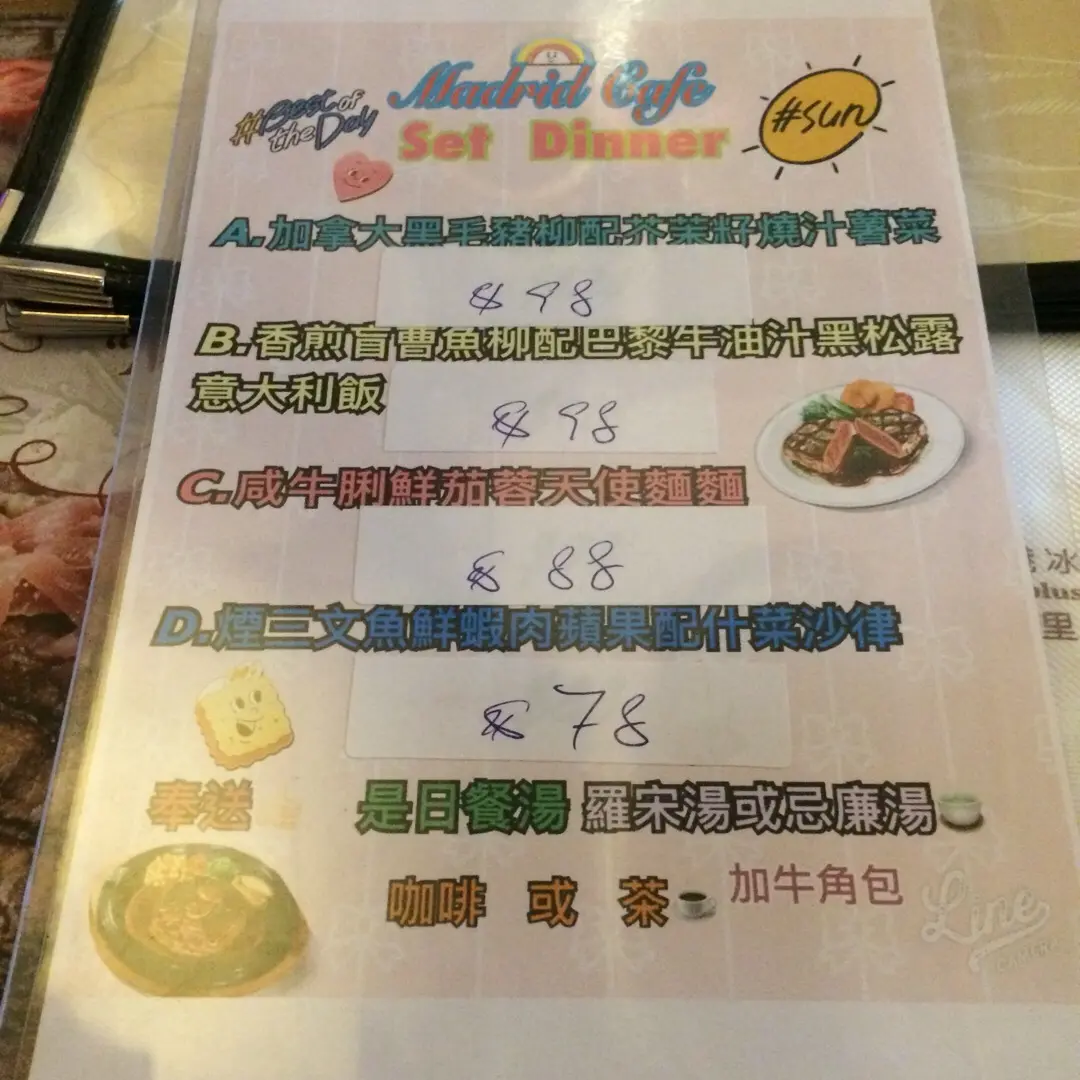 #Best of the Day
Madrid Cafe
#sun
Set Dinner
A.加拿大黑毛豬柳配芥茉籽燒汁薯菜
$98
B.香煎盲曹魚柳配巴黎牛油汁黑松露
意大利飯
$98
C.咸牛脷鮮茄蓉天使麵麵
$88
D.煙三文魚鮮蝦肉蘋果配什菜沙律
$78
奉送 是日餐湯 羅宋湯或忌廉湯
咖啡 或 茶 加牛角包
Line
CAMERA
冰
plus
里